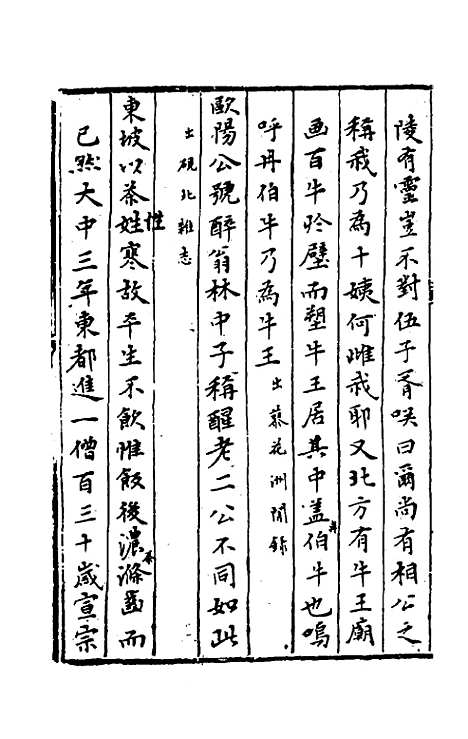 陵有靈豈不對伍子胥咲曰爾尚有相公之
稱我乃為十姨何雎我耶又北方有牛王廟
画百牛於壁而塑牛王居其中盖冉伯牛也嗚
呼冉伯牛乃為牛王出蓼花洲閒錄
歐陽公號醉翁林中子稱醒老二公不同如此
出硯北雜志
東坡以茶姓性寒故平生不飲惟飯後濃茶滌齒而
已然大中三年東都進一僧百三十歲宣宗